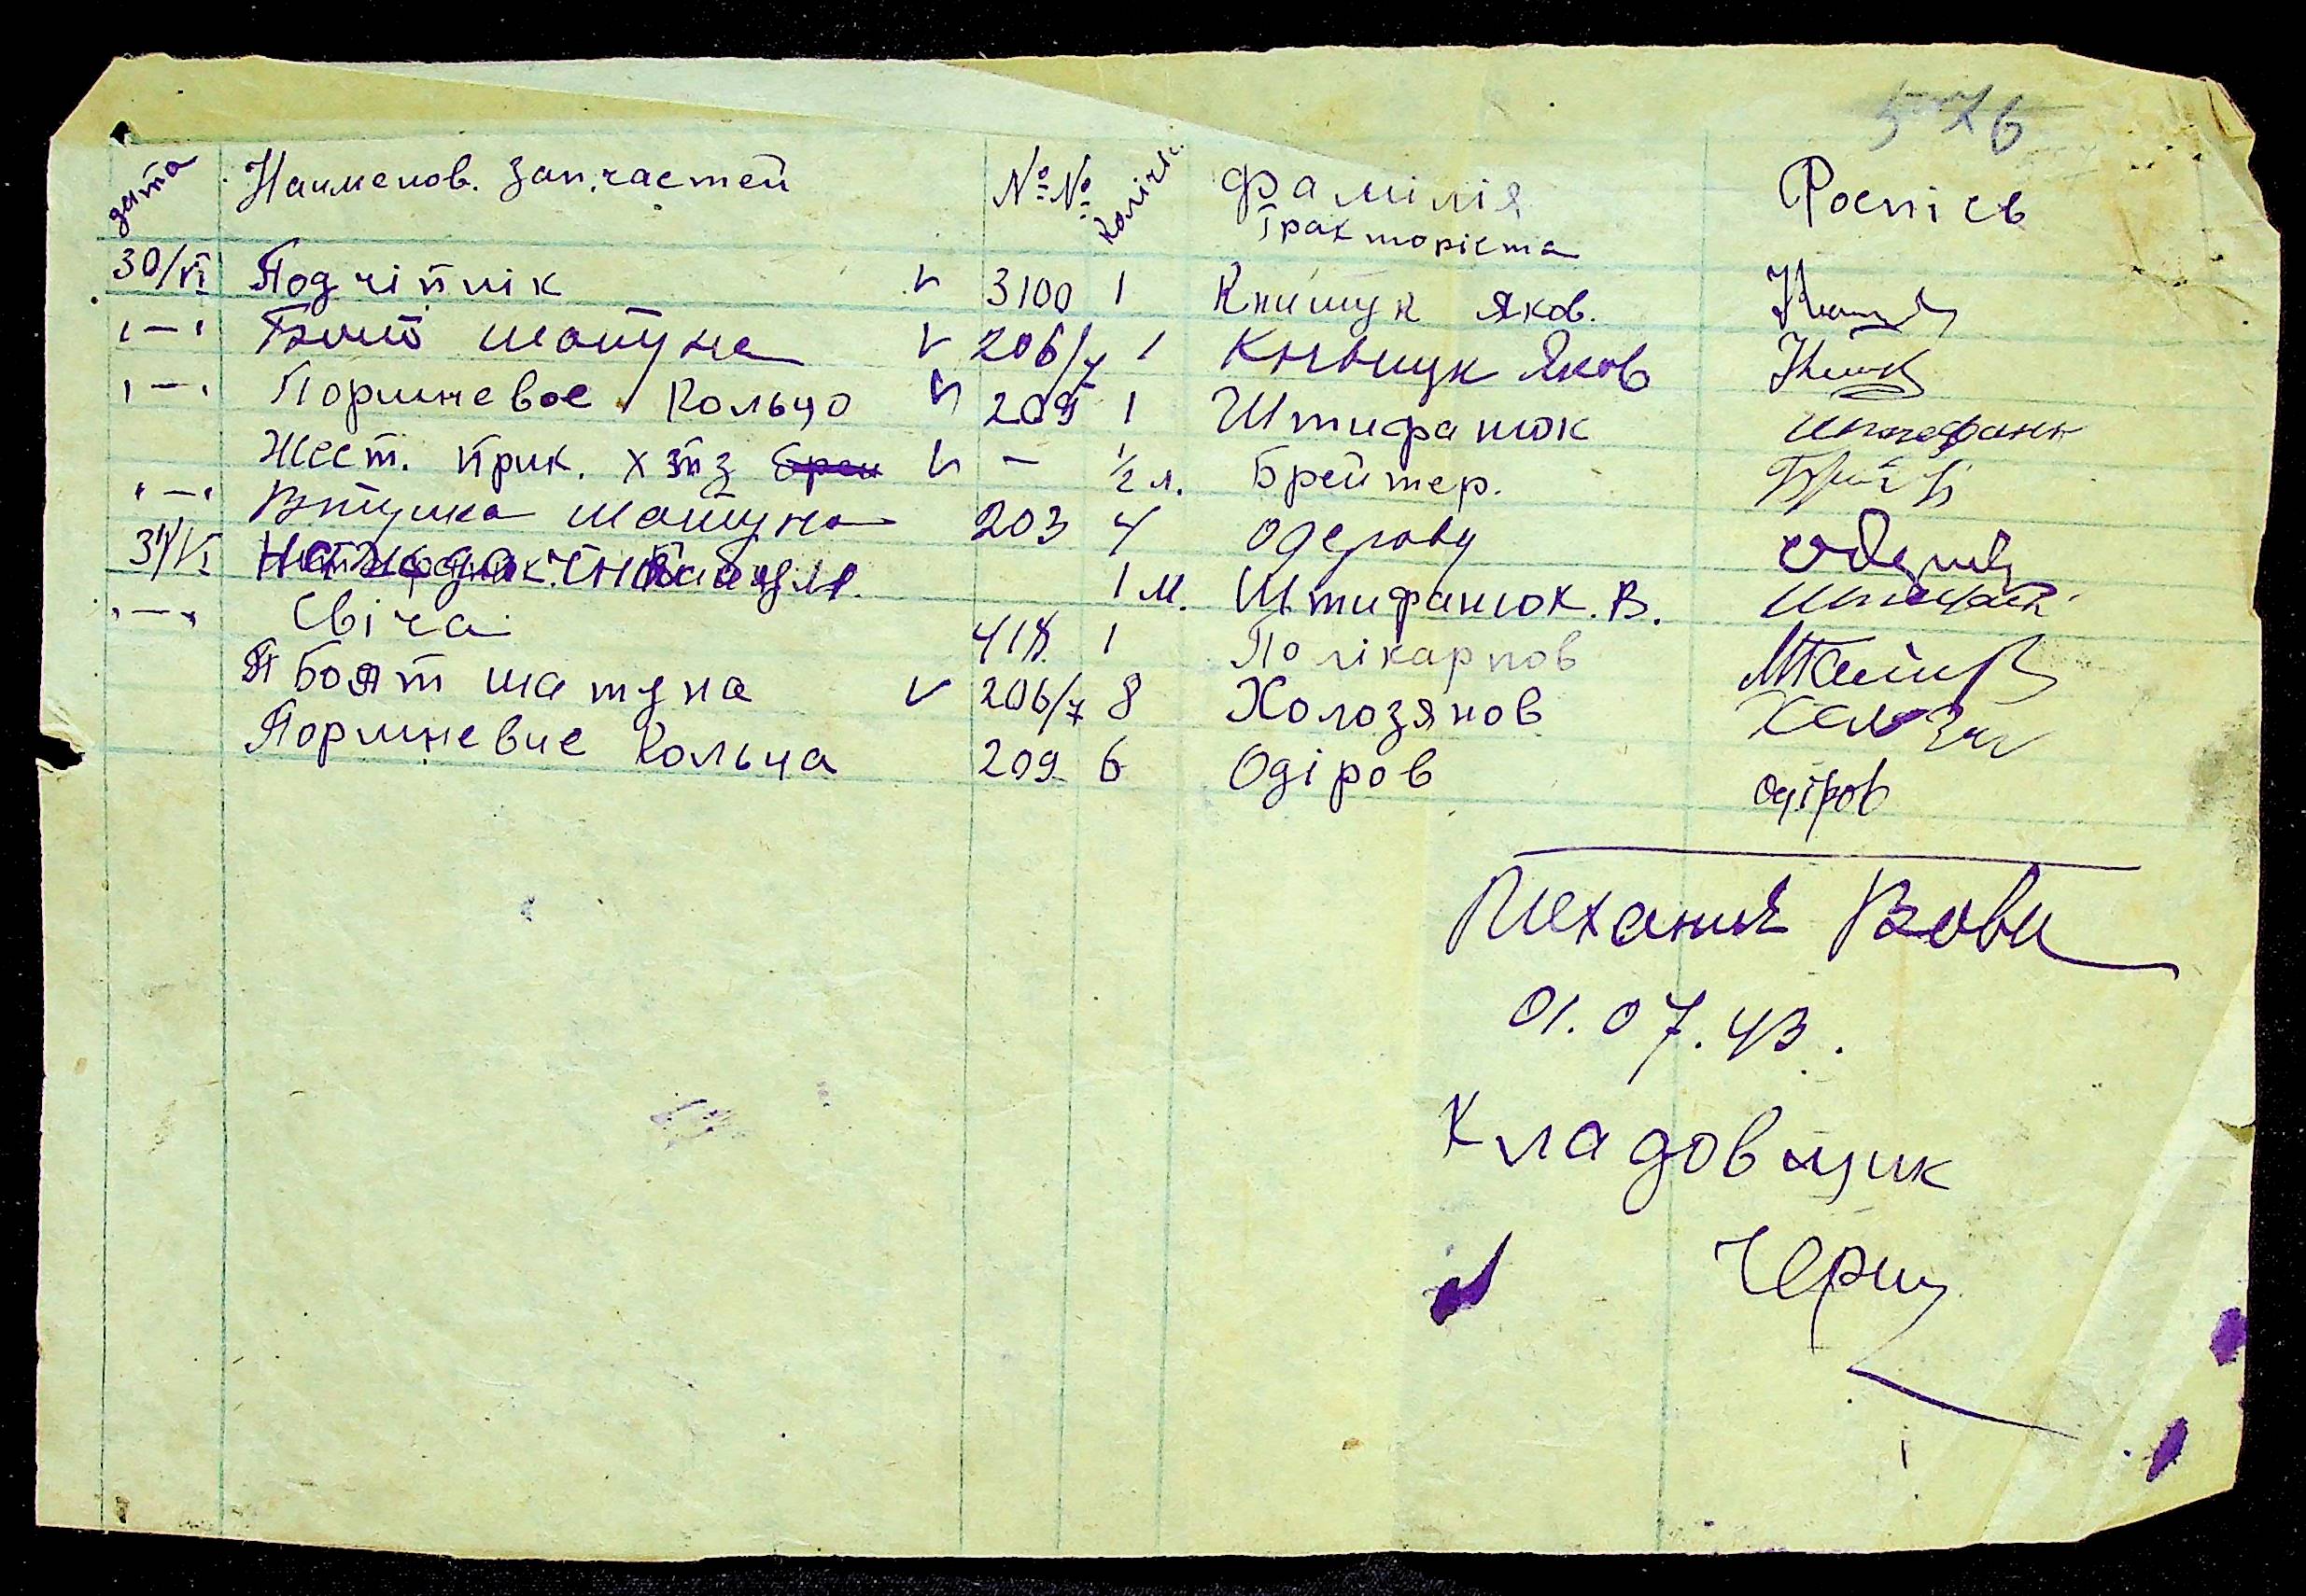 576
дата Наименов. Запчастей №№ Колічес. Фамілія Тракторіста Роспісь
30/VI Подчіпнік v 3100 1 Книщук Яков.
"—" Болт шатуна v 206/7 1 Книщук Яков
"—" Поршневое Кольцо v 209 1 Штифанюк Штефанн
Жест. прик. хтз v — 1/2 л. Брейтер.
"—" Втулка шатуна 203 4 Одерову
31/VI 1 м. Штифанюк. В.
"—" Свіча 418 1 Полікарпов
Болт шатуна v 206/7 8 Холозянов
Поршневие Кольца 209 6 Одіров Одіров
Механик
01.07.43.
Кладовщик